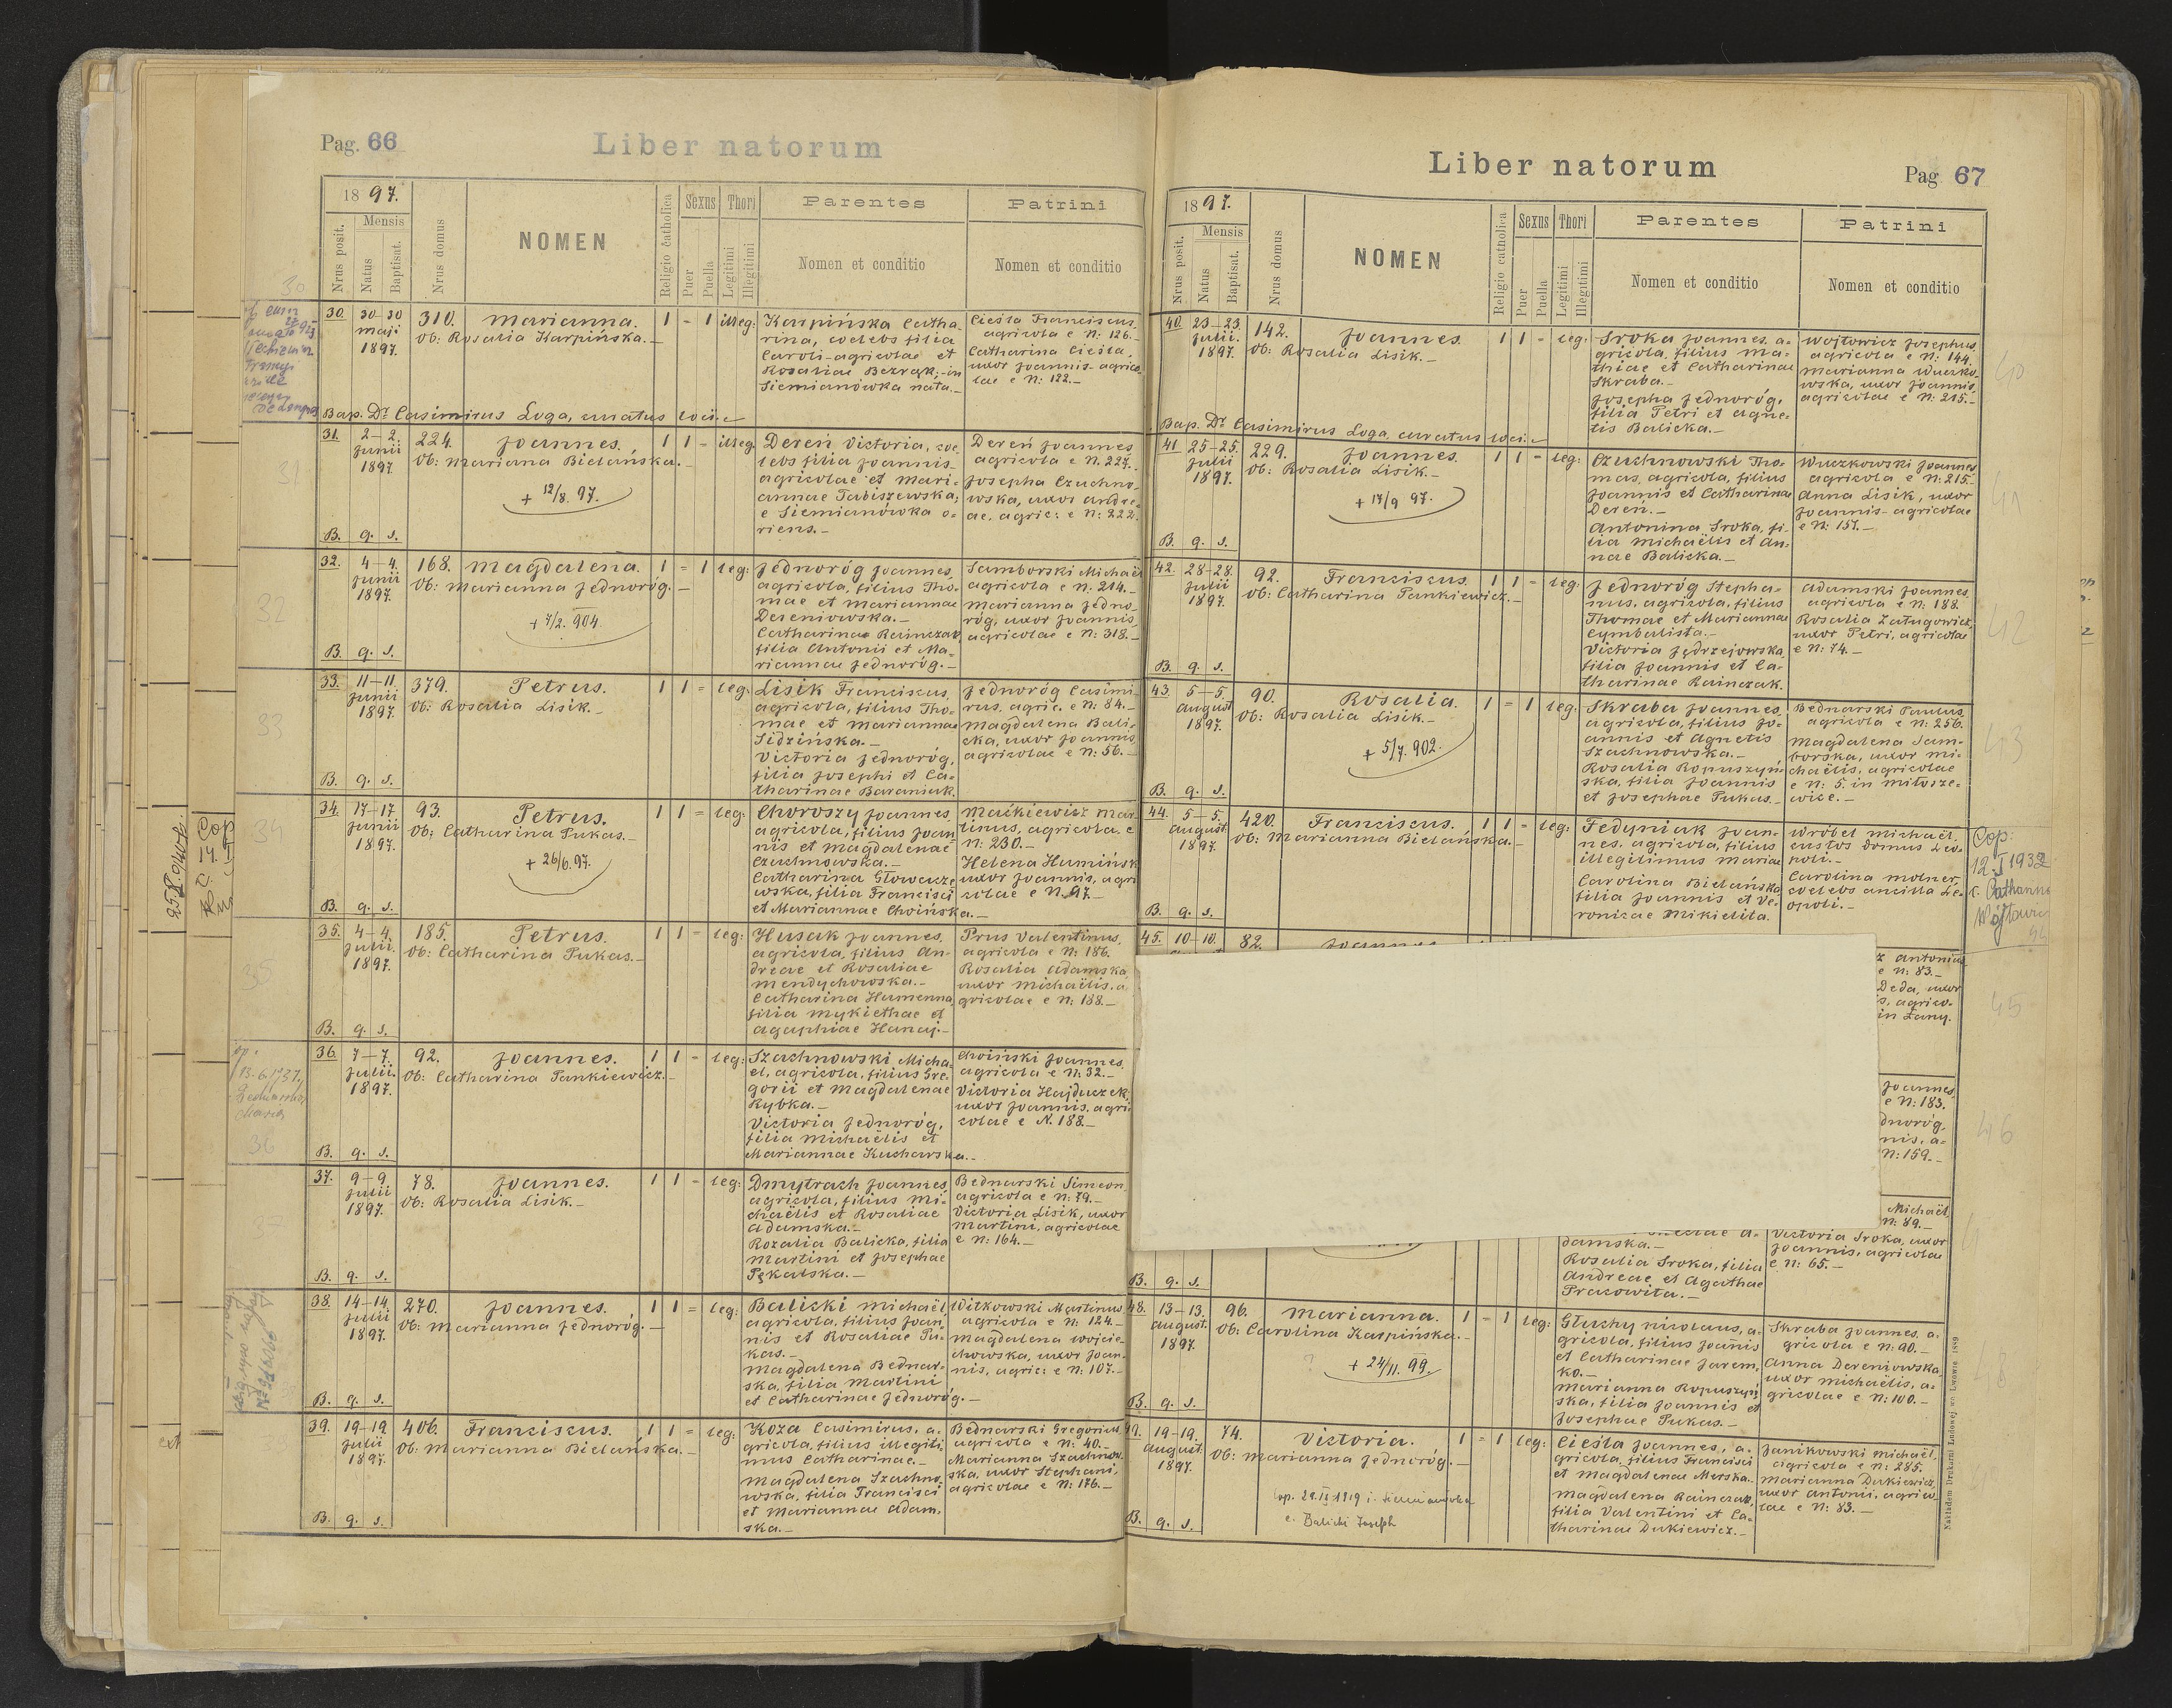 Pag. 66
Liber natorum
1897.
Nrus posit.
Mensis
Natus
Baptisat.
Nrus domus
NOMEN
Religio catholica
Sexus
Puer
Puella
Thori
Legitimi
Illegitimi
Parentes
Nomen et conditio
Patrini
Nomen et conditio
30. 30-30 maji 1897. 310. Marianna. 1 - 1 illeg:
Ob: Rosalia Karpińska.-
Karpińska Catha-
rina, coelebs filia
Caroli agricolae et
Rosaliae Bezrąk, in
Siemianówka nata.-
Cieśla Franciscus,
agricola e N: 126.-
Catharina Cieśla,
uxor Joannis agrico-
lae e N: 122.-
Bap. Dr Casimirus Loga, curatus loci.
31. 2-2. Junii 1897. 224. Joannes. 1 1 - illeg
Ob: Marianna Bielańska.-
+ 12/8. 97.
Dereń Victoria, coe-
lebs filia Joannis
agricolae et Mari-
annae Tabiszewska,
e Siemianówka o-
riens.-
Dereń Joannes
agricola e N. 227.
Josepha Czuchno-
wska, uxor Andre-
ae, agric: e N: 222.
B. q. s.
32. 4-4. Junii 1897. 168. Magdalena. 1 - 1 leg:
Ob: Marianna Jednoróg.-
+ 7/2. 904.
Jednoróg Joannes
agricola, filius Tho-
mae et Mariannae
Dereniowska.-
Catharina Rainczak
filia Antonii et Ma-
riannae Jednoróg.-
Samborski Michaël
agricola e N: 214.-
Marianna Jedno-
róg, uxor Joannis,
agricolae e N: 318.-
B. q. s.
33. 11-11 Junii 1897. 379. Petrus. 1 1 - leg:
Ob: Rosalia Lisik.-
Lisik Franciscus,
agricola, filius Tho-
mae et Mariannae
Sidzińska.-
Victoria Jednoróg,
filia Josephi et Ca-
tharinae Baraniak.
Jednoróg Casimi-
rus, agric. e N: 84.-
Magdalena Bali-
cka, uxor Joannis
agricolae e N: 56.-
B. q. s.
34. 17-17 Junii 1897. 93. Petrus. 1 1 - leg:
Ob: Catharina Pukas.-
+ 26/6.97.
Choroszy Joannes,
agricola, filius Joan-
nis et Magdalenae
Czuchnowska.-
Catharina Głowacze-
wska, filia Francisci
et Mariannae Choińska.-
Maćkiewicz Mar-
tinus, agricola e
N: 230.-
Helena Humińsk
uxor Joannis, agri
colae e N. 97.-
B. q. s.
35. 4-4. Julii. 1897. 185. Petrus. 1 1 - leg:
Ob: Catharina Pukas.-
Husak Joannes,
agricola, filius An-
dreae et Rosaliae
Mendychowska.-
Catharina Humenna,
filia Mykiethae et
Agaphiae Hanaj.-
Prus Valentinus,
agricola e N: 186.
Rosalia Adamska,
uxor Michaëlis, a-
gricolae e N: 188.-
B. q. s.
36. 7-7. Julii. 1897. 92. Joannes. 1 1 - leg:
Ob: Catharina Pankiewicz.-
Szachnowski Micha-
el, agricola, filius Gre-
gorii et Magdalenae
Rybka.-
Victoria Jednoróg,
filia Michaëlis et
Mariannae Kucharska.-
Choiński Joannes,
agricola e N: 32.-
Victoria Hajduczek,
uxor Joannis, agri-
colae e N. 188.-
B. q. s.
37. 9-9 Julii 1897. 78. Joannes. 1 1 - leg:
Ob: Rosalia Lisik.-
Dmytrach Joannes,
agricola, filius Mi-
chaëlis et Rosaliae
Adamska.-
Rozalia Balicka, filia
Martini et Josephae
Pękalska.-
Bednarski Simeon,
agricola e N: 79.-
Victoria Lisik, uxor
Martini, agricolae
e N: 164.-
B. q. s.
38. 14-14. Julii 1897. 270. Joannes. 1 1 - leg:
Ob: Marianna Jednoróg.-
Balicki Michaël,
agricola, filius Joan-
nis et Rosaliae Pu-
kas.-
Magdalena Bednar-
ska, filia Martini
et Catharinae Jednoróg.-
Witkowski Martinus
agricola e N: 124.-
Magdalena Wojcie-
chowska, uxor Joan-
nis, agric: e N: 107.-
B. q. s.
39. 19-19. Julii 1897. 406. Franciscus. 1 1 - leg:
Ob: Marianna Bielańska.-
Koza Casimirus, a-
gricola, filius illegiti
mus Catharinae.-
Magdalena Szachno-
wska, filia Francisci
et Mariannae Adam-
ska.-
Bednarski Gregorius,
agricola e N: 40.-
Marianna Szachnow-
ska, uxor Stephani,
agricolae e N: 176.-
B. q. s.
Liber natorum
Pag 67
1897.
Nrus posit.
Mensis
Natus
Baptisat.
Nrus domus
NOMEN
Religio catholica
Sexus
Puer
Puella
Thori
Legitimi
Illegitimi
Parentes
Nomen et conditio
Patrini
Nomen et conditio
40. 23-23. Julii. 1897. 142. Joannes. 1 1 - leg:
Ob: Rosalia Lisik.-
Sroka Joannes, a-
gricola, filius Ma-
thiae et Catharinae
Skraba.-
Josepha Jednoróg,
filia Petri et Agne-
tis Balicka.-
Wojtowicz Josephus,
agricola e N: 144.
Marianna Wuczko-
wska, uxor Joannis,
agricolae e N: 215.-
Bap. Dr Casimirus Loga, curatus loci.
41. 25-25. Julii 1897. 229. Joannes. 1 1 - leg:
Ob: Rosalia Lisik.-
+ 17/9 97.
Czuchnowski Tho-
mas, agricola, filius
Joannis et Catharinae
Dereń.-
Antonina Sroka, fi-
lia Michaëlis et An-
nae Balicka.-
Wuczkowski Joannes
agricola e N: 215.-
Anna Lisik, uxor
Joannis agricolae
e N: 157.-
B. q. s.
42. 28-28. Julii 1897. 92. Franciscus. 1 1 - leg:
Ob: Catharina Pankiewicz.-
Jednoróg Stepha-
nus, agricola, filius
Thomae et Mariannae
Cymbalista.-
Victoria Jędrzejowska,
filia Joannis et Ca-
tharinae Rainczak.
Adamski Joannes,
agricola e N: 188.
Rosalia Załugowicz,
uxor Petri, agricolae
e N: 74.-
B. q. s.
43. 5-5. August 1897. 90. Rosalia. 1 - 1 leg:
Ob: Rosalia Lisik.-
+ 5/7. 902.
Skraba Joannes,
agricola, filius Jo-
annis et Agnetis
Szachnowska.-
Rosalia Ropuszyn-
ska, filia Joannis
et Josephae Pukas.-
Bednarski Paulus,
agricola e N: 256.
Magdalena Sam-
borska, uxor Mi-
chaëlis, agricolae
e N: 5. in Miłosze-
wice.-
B. q. s.
44. 5-5. August. 1897. 420. Franciscus. 1 1 - leg:
Ob: Marianna Bielańska.-
Fedyniak Joan-
nes, agricola, filius
illegitimus Mariae
Carolina Bielańska
filia Joannis et Ve-
ronicae Mikielita.
Wróbel Michaël,
custos domus Leo-
poli.-
Carolina Molner,
coelebs ancilla Le-
opoli.-
Cop:
12.I 1932
B. q. s.
45. 10-10. 82.
antonius
e N: 83.-
Deda, uxor
s, agrico-
in Łany.
45
Joannes,
e N: 183.
dnoróg,
nis, a-
N: 159.-
46
Michaël
N: 89.-
damska.-
Rosalia Sroka, filia
Andreae et Agathae
Prakowita.-
Victoria Sroka, uxor
Joannis, agricolae
e N: 65.-
B. q. s.
48. 13-13. August. 1897. 96. Marianna. 1 - 1 leg:
Ob: Carolina Karpińska.-
+ 24/11. 99.
Głuchy Nicolaus, a-
gricola, filius Joannis
et Catharinae Jarem-
ko.-
Marianna Ropuszyń
ska, filia Joannis et
Josephae Pukas.-
Skraba Joannes, a-
gricola e N: 90.-
Anna Dereniowska,
uxor Michaëlis, a-
gricolae e N: 100.-
B. q. s.
49. 19-19. August. 1897. 74. Victoria. 1 - 1 leg:
Ob: Marianna Jednoróg.-
Cop. 29.IX 1919 i. Siemianówka
c. Balicki Joseph
Cieśla Joannes, a-
gricola, filius Francisci
et Magdalenae Merska.-
Magdalena Rainczak,
filia Valentini et Ca-
tharinae Dukiewicz.-
Janikowski Michaël,
agricola e N: 285.
Marianna Dukiewicz,
uxor Antonii, agrico-
lae e N: 83.-
B. q. s.
Nakładem Drukarni Ludowej we Lwowie 1889